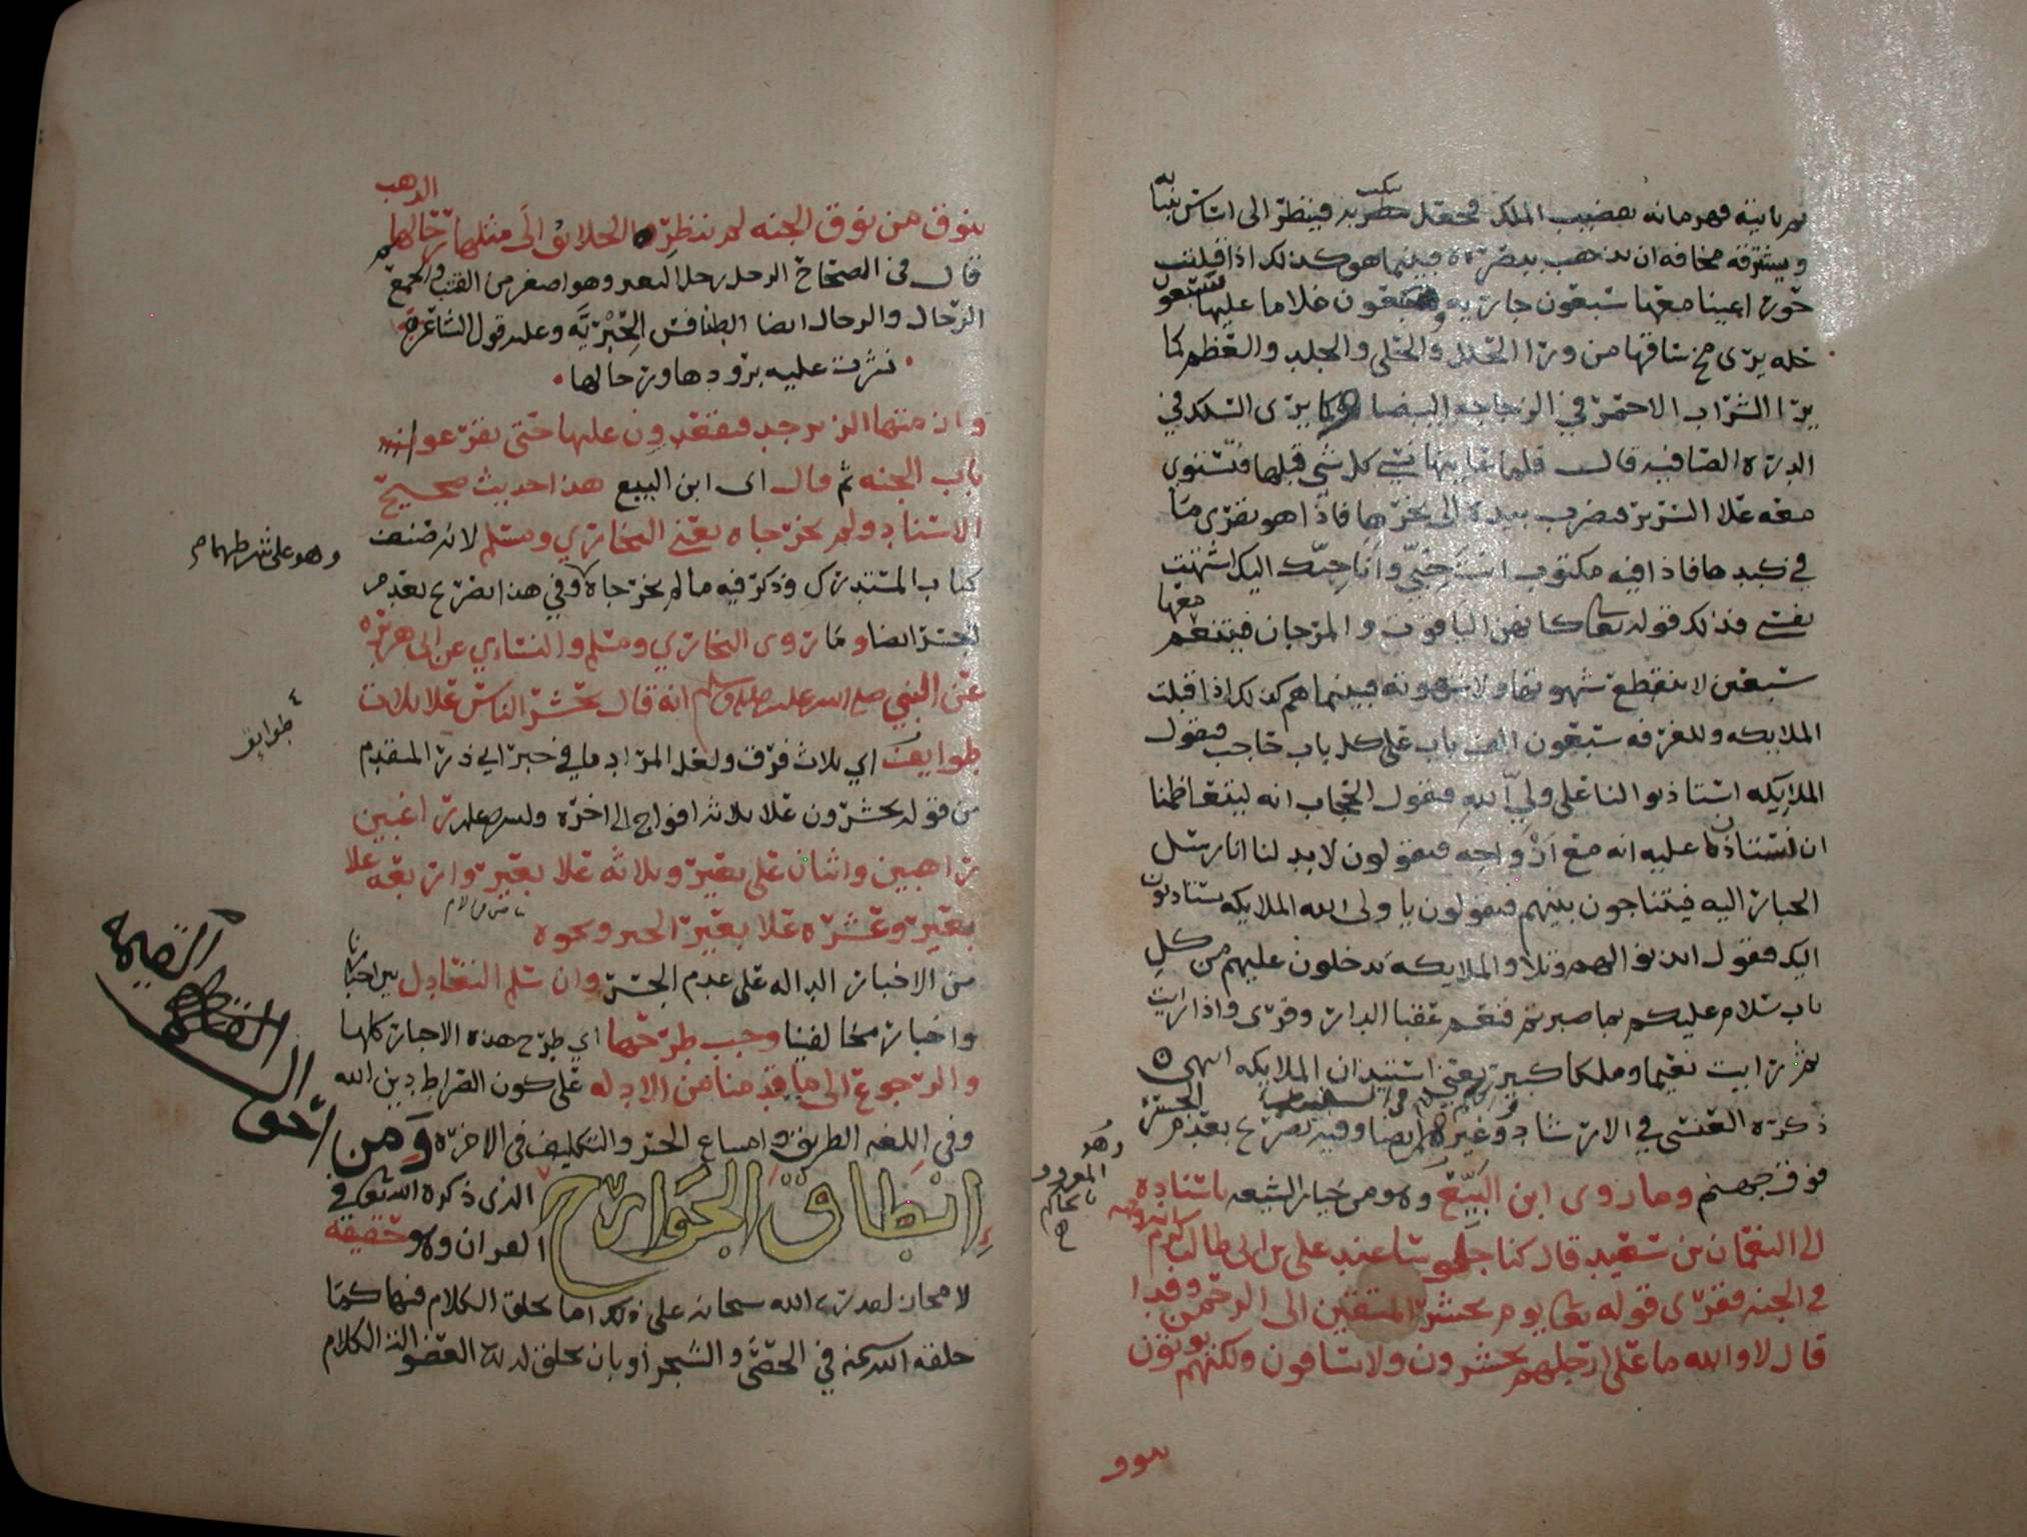 ثم ياتيه قهرمانه بقضيب الملك فجعل ينكت به فينظر الى اساس بنيانه
ويسترقه مخافة ان يذهب ببصره فبينما هو كذلك اذا اقبلت
حورا عينا معها سبعون جارية وسبعون غلاما عليها سبعون
حلة يرى مخ ساقها من ورا الحلل والحلى والجلد والعظم كما
يرا الشراب الاحمر في الزجاجه البيضا وكما يرى السلك في
الدرة الصافيه قال فلما عاينها نسي كل شي قبلها فتستوي
معه علا السرير فيضرب بيده الى نحرها فاذا هو يقرى ما
في كبدها فاذا فيه مكتوب انت حبي وانا حبك اليك اشتهت
نفسي فذلك قوله تعالى كانهن الياقوت والمرجان فيتنعم معها
سبعين لا ينقطع شهوتها ولا شهوته فبينما هم كذلك اذا اقبلت
الملايكه وللغرفه سبعون الف باب على كل باب حاجب فيقول
الملايكه استاذنوا لنا على ولي الله فيقول الحجاب انه ليتعاظمنا
ان نستاذن عليه انه مع ازواجه فيقولون لا بد لنا انا رسل
الجبار اليه فيتناجون بينهم فيقولون يا ولى الله الملايكه يستاذنون
اليك فيقول ايذنوا لهم وتلا والملايكه يدخلون عليهم من كل
باب سلام عليكم بما صبرتم فنعم عقبا الدار وقرى واذا رايت
ثم رايت نعيما وملكا كبيرا يعني استيذان الملايكه انتهى
ذكره العنسي في الارشاد وغيره ايضا وفيه تصريح بعدم الجسر
فوق جهنم وما روى ابن البيع وهو من خيار الشيعه باسناده
وهو المعروف بالحاكم
الى النعمان بن سعيد قال كنا جلوسا عند علي بن ابي طالب كرم الله وجهه
في الجنه فقرى قوله تعالى يوم نحشر المتقين الى الرحمن وفدا
قال لا والله ما على ارجلهم يحشرون ولا يساقون ولكنهم يوتون
بنوق
بنوق من نوق الجنه لم تنظر الخلائق الى مثلها رحالها الذهب
قال في الصحاح الرحل رحل البعير وهو اصغر من القتب والجمع
الرحال والرحال ايضا الطنافس الحيرية وعليه قول الشاعر
نشرت عليه برودها ورحالها
وازمتها الزبرجد فيقعدون عليها حتى يقرعوا
باب الجنه ثم قال اى ابن البيع هذا حديث صحيح
الاسناد ولم يخرجاه يعني البخاري ومسلم لانه صنف
وهو على شرطهما
كتاب المستدرك وذكر فيه ما لم يخرجاه وفي هذا تصريح بعدم
الجسر ايضا وما روى البخاري ومسلم والنساءي عن ابي هريرة
عن النبي صلى الله عليه وسلم انه قال يحشر الناس علا ثلاث
طوايف اي ثلاث فرق ولعل المراد ما في خبر ابي ذر المتقدم
طوايق
من قوله يحشرون علا ثلاثه افواج الى اخره راغبين
راهبين واثنان على بعير وثلاثه علا بعير واربعه علا
بعير وعشره علا بعير الخبر ونحوه
من الاخبار الداله على عدم الجسر وان سلم التعادل بين اخبارنا
واخبار مخالفينا وجب طرحها اي طرح هذه الاخبار كلها
والرجوع الى ما قدمنا من الادله على كون الصراط دين الله
وفي اللغه الطريق وامتناع الجسر والتكليف في الاخره ومن
احوال القيمه
انطاق الجوارح الذي ذكره الله تعالى في
القران وهو حقيقه
لا مجاز لقدرة الله سبحانه على ذلك اما بخلق الكلام فيها كما
خلقه الله سبحانه في الحصى والشجر او بان يخلق لذلك العضو الة الكلام